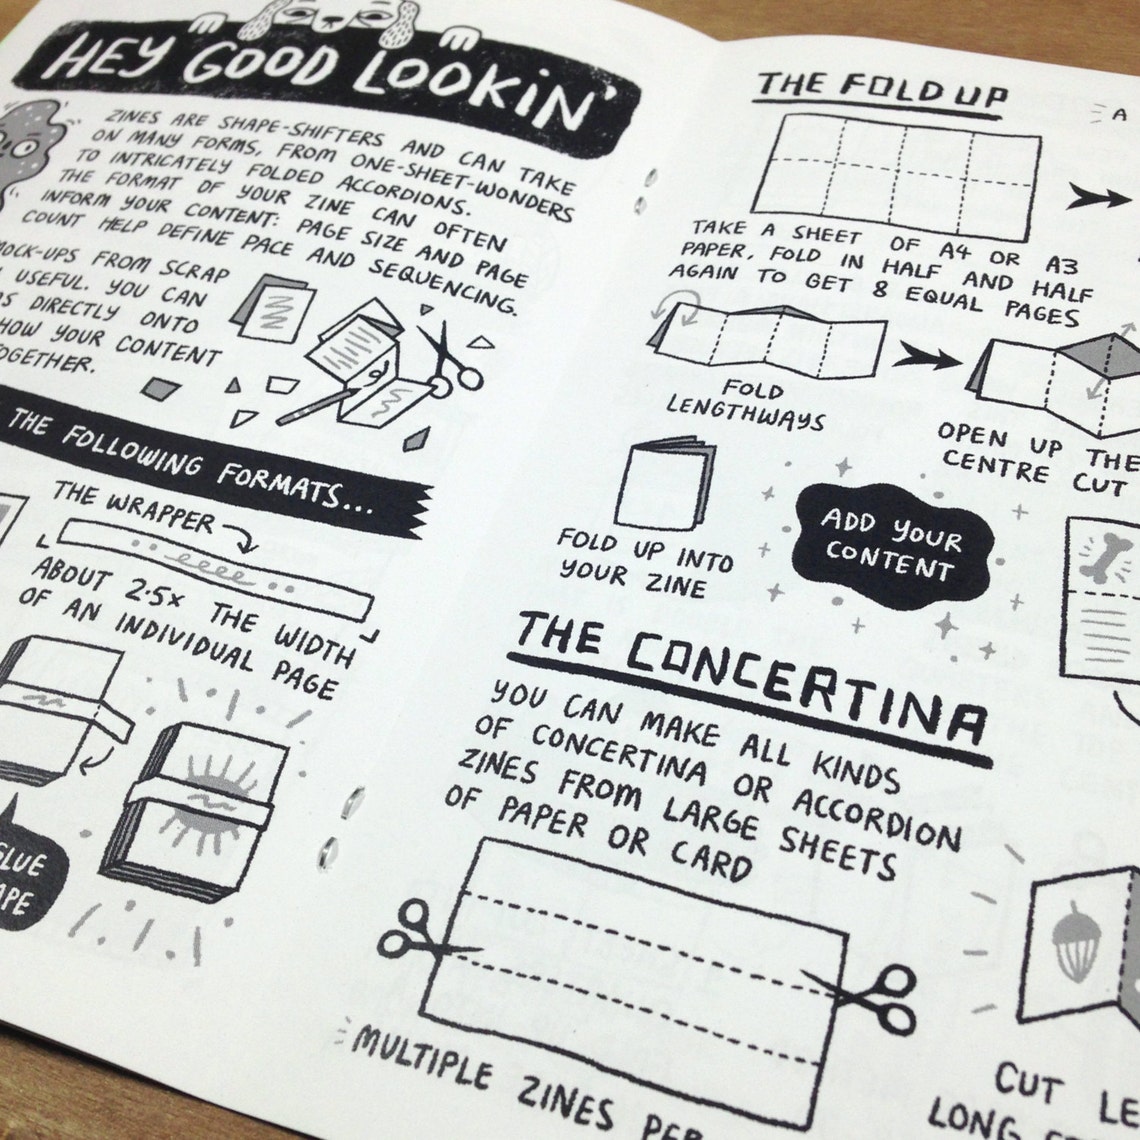 HEY GOOD LOOKIN'
ZINES ARE SHAPE-SHIFTERS AND CAN TAKE
ON MANY FORMS, FROM ONE-SHEET-WONDERS
TO INTRICATELY FOLDED ACCORDIONS.
THE FORMAT OF YOUR ZINE CAN OFTEN
INFORM YOUR CONTENT: PAGE SIZE AND PAGE
COUNT HELP DEFINE PACE AND SEQUENCING.
MOCK-UPS FROM SCRAP
USEFUL. YOU CAN
DIRECTLY ONTO
HOW YOUR CONTENT
TOGETHER.
THE FOLLOWING FORMATS...
THE WRAPPER
ABOUT 2.5x THE WIDTH
OF AN INDIVIDUAL PAGE
THE FOLD UP
A
TAKE A SHEET OF A4 OR A3
PAPER, FOLD IN HALF AND HALF
AGAIN TO GET 8 EQUAL PAGES
FOLD
LENGTHWAYS
OPEN UP THE
CENTRE CUT
FOLD UP INTO
YOUR ZINE
ADD YOUR
CONTENT
THE CONCERTINA
YOU CAN MAKE ALL KINDS
OF CONCERTINA OR ACCORDION
ZINES FROM LARGE SHEETS
OF PAPER OR CARD
MULTIPLE ZINES PER
CUT
LONG